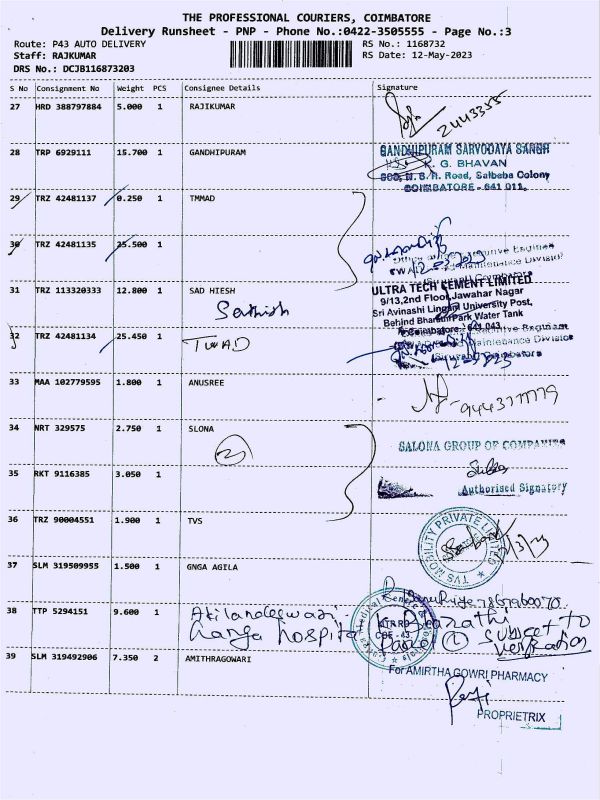 THE PROFESSIONAL COURIERS, COIMBATORE
Delivery Runsheet - PNP - Phone No.:0422-3505555 - Page No.:3
Route: P43 AUTO DELIVERY
RS No.: 1168732
Staff: RAJKUMAR
RS Date: 12-May-2023
DRS No.: DCJB116873203
S No Consignment No Weight PCS Consignee Details Signature
27 HRD 388797884 5.000 1 RAJIKUMAR
2443355
28 TRP 6929111 15.700 1 GANDHIPURAM
GANDHIPURAM SARVODAYA SANGH
K. G. BHAVAN
N. S. R. Road, Saibaba Colony
COIMBATORE - 641 011.
29 TRZ 42481137 0.250 1 TMMAD
30 TRZ 42481135 25.500 1
Maintenance Division
31 TRZ 113320333 12.800 1 SAD HIESH
Sathish
ULTRA TECH CEMENT LIMITED
9/13,2nd Floor,Jawahar Nagar
Sri Avinashi Lingam University Post,
Behind Bharathi Park Water Tank
Coimbatore 641 043
32 TRZ 42481134 25.450 1 TWAD
Maintenance Division
33 MAA 102779595 1.800 1 ANUSREE
34 NRT 329575 2.750 1 SLONA
2
SALONA GROUP OF COMPANIES
35 RKT 9116385 3.050 1
Authorised Signatory
36 TRZ 90004551 1.900 1 TVS
TVS MOBILITY PRIVATE LIMITED
37 SLM 319509955 1.500 1 GNGA AGILA
38 TTP 5294151 9.600 1 Akilandeswari
Ganga hospital
Parcel 1 Subject to
verification
39 SLM 319492906 7.350 2 AMITHRAGOWARI
For AMIRTHA GOWRI PHARMACY
PROPRIETRIX